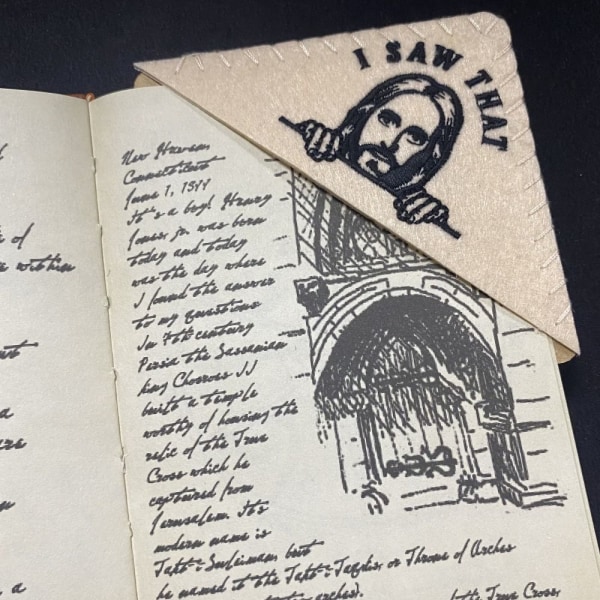 I SAW THAT
New Haven,
Connecticut
June 1, 1899
It's a boy! Henry
Jones, jr. was born
today and today
was the day where
I found the answer
to my questions
In 7th century
Persia the Sassanian
king Chosroes II
built a temple
worthy of housing the
relic of the True
Cross which he
captured from
Jerusalem. It's
modern name is
Takt-i-Suleiman, but
he named it the Takt-i-Taqdis, or Throne of Arches
arches).
the True Cross,
of
within
a
a